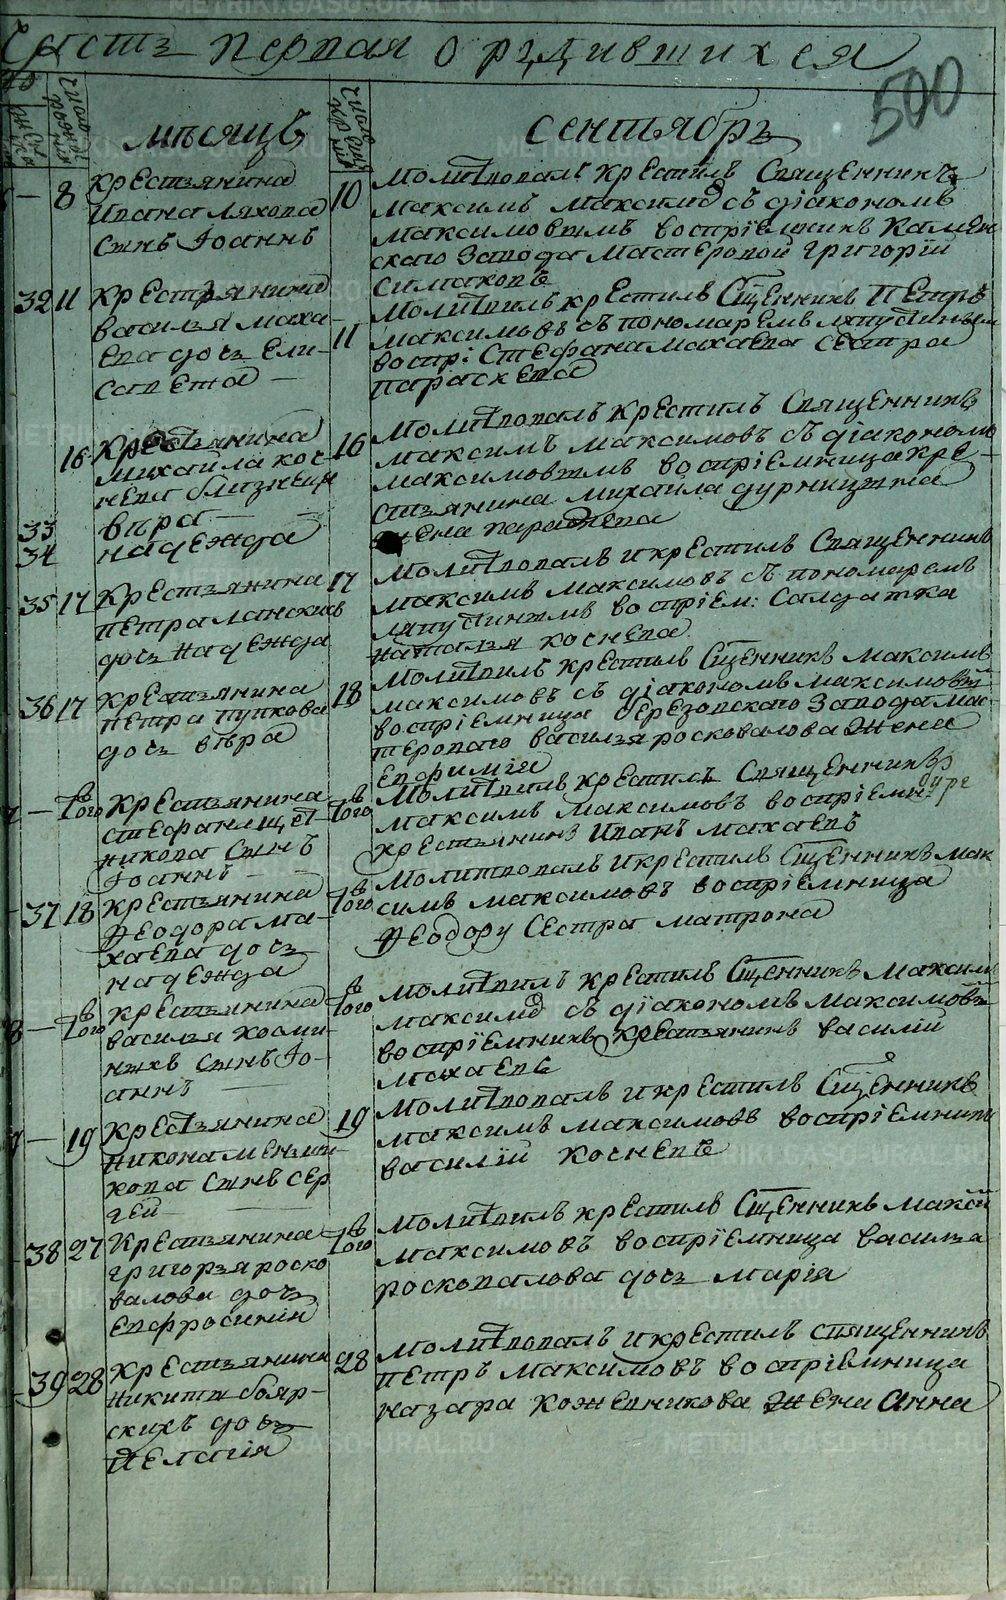 Часть первая о рдившихся
500
мѣсяцъ
сентябрь
8 Крестьянина
Ивана Ляхова
сынъ Iоаннъ
10 Молитвовалъ Крестилъ Священникъ
Максимъ Максимо съ дiакономъ
Максимовымъ воспрiемникъ Камен
скаго Завода Мастеровой Григорiй
Симаковъ
32 11 Крестьянина
василья маха
ева дочь Ели-
савета
11 Молитвилъ крестилъ Сщенникъ Петръ
максимовъ съ пономаремъ Ляпустинымъ
воспрi: Стефана Махаева сестра
параскева
16 Крестьянина
михаила кос
нева близнецы
33 вѣра
34 надежда
16 Молитвовалъ Крестилъ Священникъ
Максимъ Максимовъ съ дiакономъ
Максимовымъ воспрiемница кре-
стьянина михаила дурницына
жена параскева
35 17 Крестьянина
петра Ланскихъ
дочь надежда
17 Молитвовалъ и крестилъ Священникъ
максимъ максимовъ съ пономаремъ
ляпустинымъ воспрiем: Салдатка
наталья коснева
36 17 Крестьянина
петра пупкова
дочь вѣра
18 Молитвилъ крестилъ Сщенникъ Максимъ
максимовъ съ дiакономъ максимовым
воспрiемница березовскаго Завода ма-
стероваго василья росковалова жена
Евфимiя
Того Крестьянина
стефана щет
никова Сынъ
Iоаннъ
Того Молитвилъ крестилъ Священникъ
максимъ Максимовъ воспрiемн:
крестьянинъ Иванъ Махаевъ
37 18 Крестьянина
Ѳеодора ма-
хаева дочь
надежда
Того Молитвовалъ и крестилъ Сщенникъ Мак
симъ максимовъ воспрiемница
Ѳеодору Сестра матрона
Того Крестьянина
василья косми
ныхъ Сынъ Iо-
аннъ
Того Молитвилъ крестилъ Сщенникъ Максим
Максимо съ дiакономъ максимовы
воспрiемникъ крестьянинъ василiй
Махаевъ
19 Крестьянина
никона меньши-
кова Сынъ сер
гей
19 Молитвовалъ и крестилъ Сщенникъ
максимъ максимовъ воспрiемникъ
василiй Косневъ
38 27 Крестьянина
григорья роско
валова дочь
Евфросинiя
Того Молитвилъ крестилъ Сщенникъ макси
максимовъ воспрiемница василья
росковалова дочь марiя
39 28 Крестьянина
Никиты бояр-
скихъ дочь
Пелагiя
28 Молитвовалъ и крестилъ священникъ
петръ Максимовъ воспрiемница
назара кожевникова жена Анна
METRIKI.GASO-URAL.RU